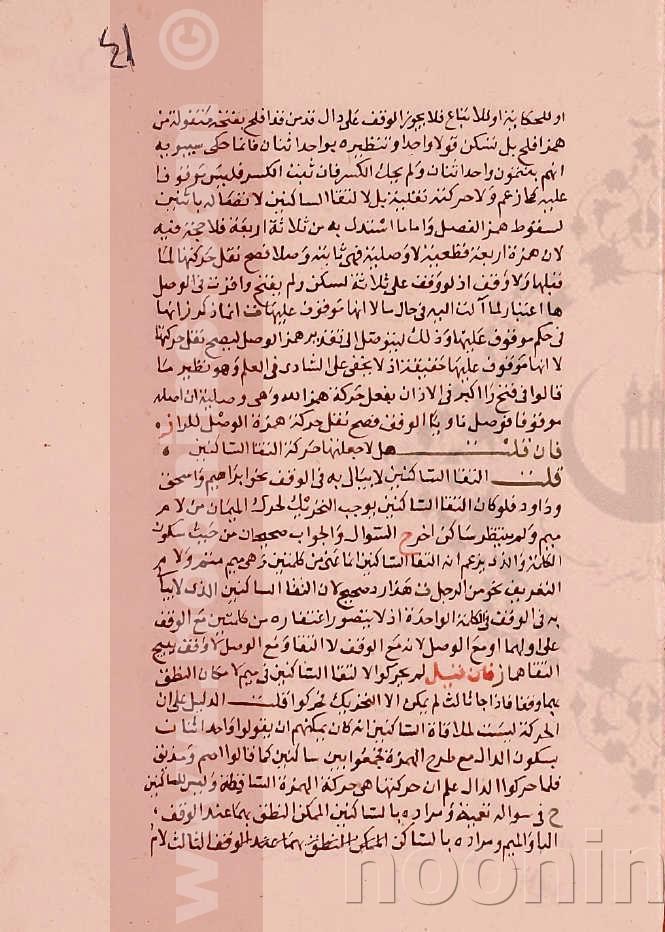 ٤١
او للحكاية او للاتباع فلا يجوز الوقف على دال قد من قد افلح بفتحة منقولة من
همز افلح بل تسكن قولا واحدا وتنظيره بواحد اثنان فانما حكى سيبويه
انهم يشمون واحد اثنان ولم يحك الكسر فان ثبت الكسر فليس موقوفا
عليه كما زعم ولا حركته نقلية بل لالتقا الساكنين لاتصاله باثنين
لسقوط همز الفصل واما ما استدل به من ثلاثة اربعة فلا حجة فيه
لان همزة اربعة قطعية لا وصلية فهى ثابتة وصلا فصح نقل حركتها لما
قبلها ولا وقف اذ لو وقف على ثلاثة لسكن ولم يفتح واقرت فى الوصل
ها اعتبار لما آلت اليه فى حال ما لا انها موقوف عليها انما ذكر انها
فى حكم موقوف عليها وذلك ليتوصل الى تقدير همز الوصل ليصح نقل حركتها
لا انها موقوف عليها حقيقة اذ لا يخفى على الشادى فى العلم وهو نظير ما
قالوا فى فتح را اكبر فى الاذان بفعل حركة همز الله وهى وصلية ان اصله
موقوفا فوصل ناويا الوقف فصح نقل حركة همزة الوصل للرا
فان قلت هلا جعلتها حركة التقا الساكنين
قلت التقا الساكنين لا يبالى به فى الوقف نحو ابراهيم واسحق
وداود فلو كان التقا الساكنين يوجب التحريك لحرك الميمان من لام
ميم ولم ينتظر ساكن اخر ح السوال والجواب صحيحان من حيث سكون
الكلمة والذى يزعم انه التقا الساكنين انما عنى من كلمتين وهى ميم منتم ولام
التعريف نحو من الرجل ف هذا رد صحيح لان التقا الساكنين الذى لا يبالى
به فى الوقف فى الكلمة الواحدة اذ لا يتصور اغتفاره من كلمتين مع الوقف
على اولهما او مع الوصل لانه مع الوقف لا التقا ومع الوصل لا وقف يبيح
التقاهما ز فان قيل لم يحركوا لالتقا الساكنين فى ميم لامكان النطق
بهما وقفا فاذا جا ثالث لم يمكن الا التحريك فحركوا قلت الدليل على ان
الحركة ليست لملاقاة الساكنين انه كان يمكنهم ان يقولوا واحد اثنان
بسكون الدال مع طرح الهمزة فجمعوا بين ساكنين كما قالوا اصم ومديق
فلما حركوا الدال علم ان حركتها هى حركة الهمزة الساقطة وليس للساكنين
ح فى سواله تعمية ومراده بالساكنين الممكن النطق بهما عند الوقف
اليا والميم ومراده بالساكن الممكن النطق بهما عند الوقف الثالث لام
noonin